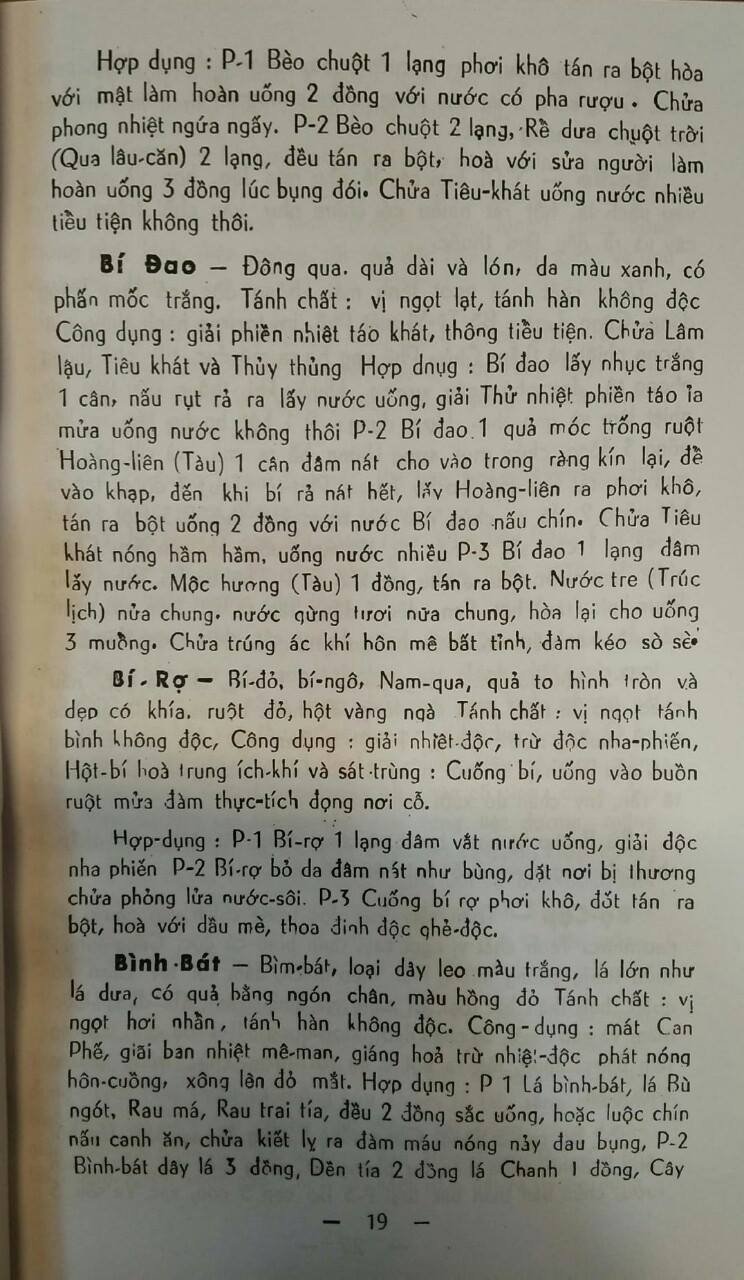 Hợp dụng : P-1 Bèo chuột 1 lạng phơi khô tán ra bột hòa
với mật làm hoàn uống 2 đồng với nước có pha rượu. Chửa
phong nhiệt ngứa ngấy. P-2 Bèo chuột 2 lạng, Rễ dưa chuột trời
(Qua lâu-căn) 2 lạng, đều tán ra bột, hoà với sửa người làm
hoàn uống 3 đồng lúc bụng đói. Chửa Tiêu-khát uống nước nhiều
tiểu tiện không thôi.
Bí Đao — Đông qua. quả dài và lón, da màu xanh, có
phấn mốc trắng. Tánh chất : vị ngọt lạt, tánh hàn không độc
Công dụng : giải phiền nhiệt táo khát, thông tiểu tiện. Chửa Lâm
lậu, Tiêu khát và Thủy thủng Hợp dnụg : Bí đao lấy nhục trắng
1 cân, nấu rụt rả ra lấy nước uống, giải Thử nhiệt phiền táo ỉa
mửa uống nước không thôi P-2 Bí đao 1 quả móc trống ruột
Hoàng-liên (Tàu) 1 cân đâm nát cho vào trong ràng kín lại, để
vào khạp, đến khi bí rả nát hết, lấy Hoàng-liên ra phơi khô,
tán ra bột uống 2 đồng với nước Bí đao nấu chín. Chửa Tiêu
khát nóng hầm hầm, uống nước nhiều P-3 Bí đao 1 lạng đâm
lấy nước. Mộc hương (Tàu) 1 đồng, tán ra bột. Nước tre (Trúc
lịch) nửa chung. nước gừng tươi nữa chung, hòa lại cho uống
3 muồng. Chửa trúng ác khí hôn mê bất tỉnh, đàm kéo sò sè.
Bí-Rợ — Bí-đỏ, bí-ngô, Nam-qua, quả to hình tròn và
dẹp có khía. ruột đỏ, hột vàng ngà Tánh chất : vị ngọt tánh
bình không độc, Công dụng : giải nhiệt-độc, trừ độc nha-phiến,
Hột-bí hoà trung ích-khí và sát-trùng : Cuống bí, uống vào buồn
ruột mửa đàm thực-tích đọng nơi cổ.
Hợp-dụng : P-1 Bí-rợ 1 lạng đâm vắt nước uống, giải độc
nha phiến P-2 Bí-rợ bỏ da đâm nát như bùng, dặt nơi bị thương
chửa phỏng lửa nước-sôi. P-3 Cuống bí rợ phơi khô, đốt tán ra
bột, hoà với dầu mè, thoa đinh độc ghẻ-độc.
Bình-Bát — Bìm-bát, loại dây leo màu trắng, lá lớn như
lá dưa, có quả bằng ngón chân, màu hồng đỏ Tánh chất : vị
ngọt hơi nhần, tánh hàn không độc. Công-dụng : mát Can
Phế, giãi ban nhiệt mê-man, giáng hoả trừ nhiệt-độc phát nóng
hôn-cuồng, xông lên đỏ mắt. Hợp dụng : P 1 Lá bình-bát, lá Bù
ngót, Rau má, Rau trai tía, đều 2 đồng sắc uống, hoặc luộc chín
nấu canh ăn, chửa kiết lỵ ra đàm máu nóng nảy đau bụng, P-2
Bình-bát dây lá 3 đồng, Dền tía 2 đồng lá Chanh 1 đồng, Cây
— 19 —